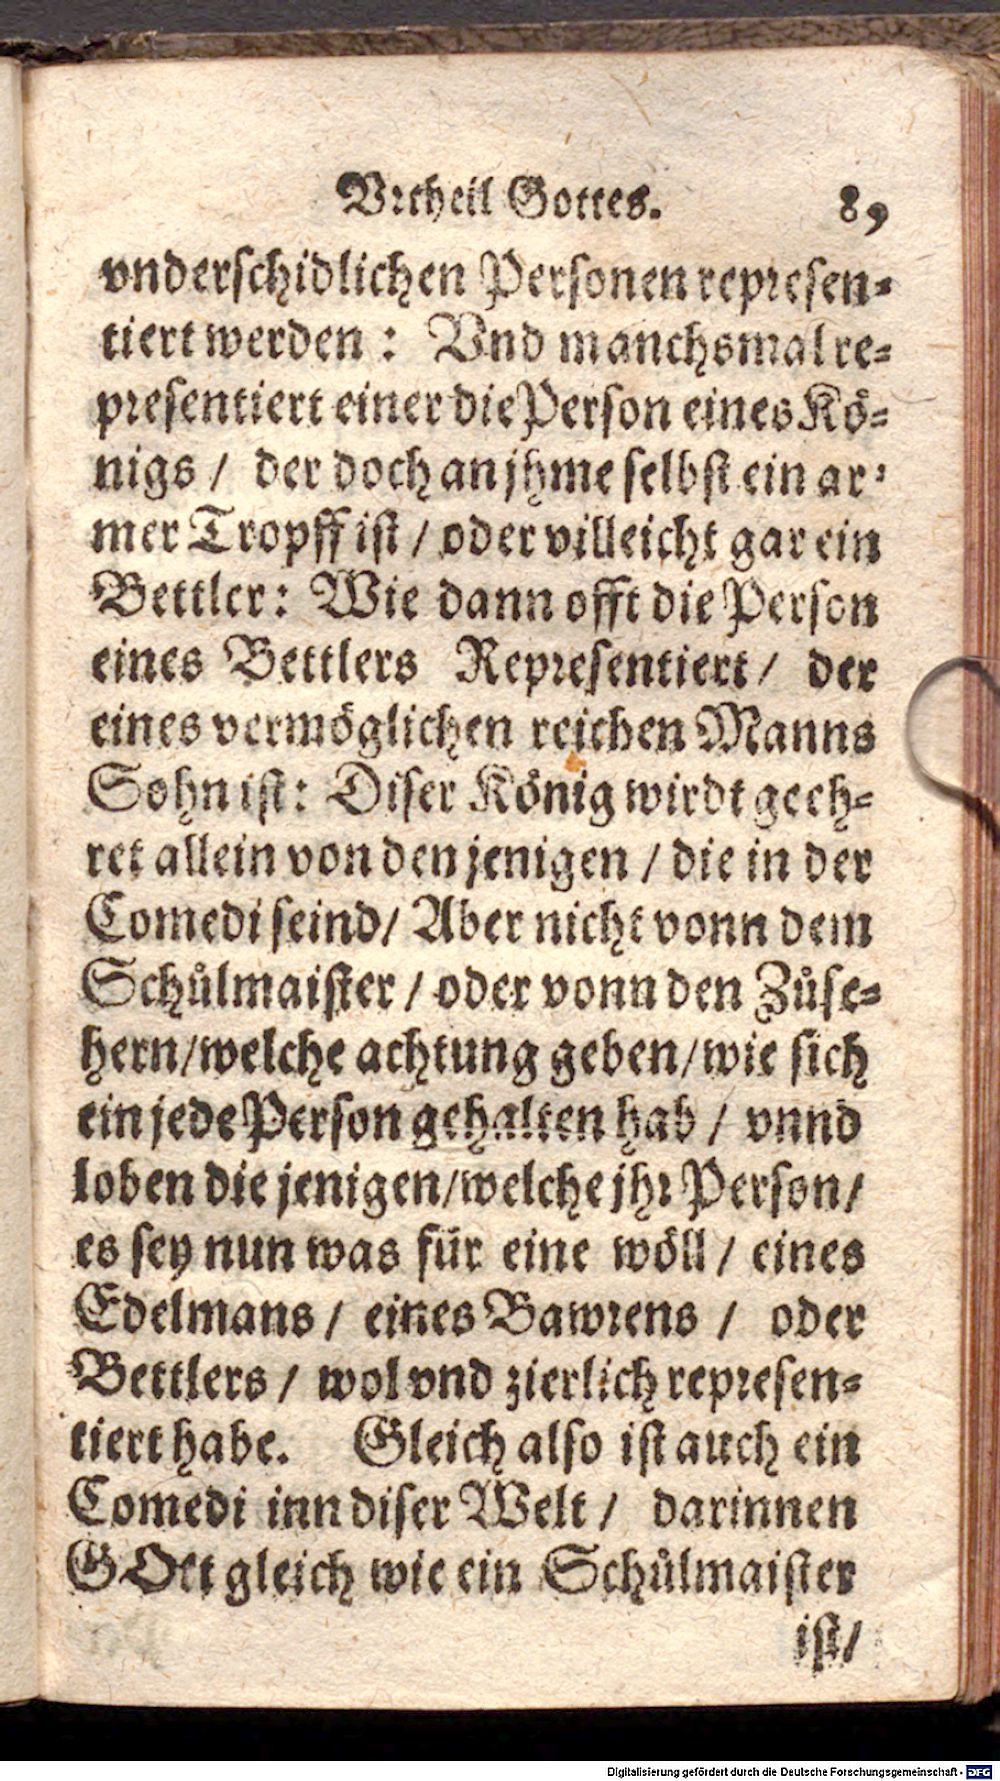 Vrtheil Gottes. 89
vnderschidlichen Personen represen-
tiert werden : Vnd manchsmal re-
presentiert einer die Person eines Kö-
nigs / der doch an jhme selbst ein ar-
mer Tropff ist / oder villeicht gar ein
Bettler: Wie dann offt die Person
eines Bettlers Representiert / der
eines vermöglichen reichen Manns
Sohn ist: Diser König wirdt geeh-
ret allein von den jenigen / die in der
Comedi seind / Aber nicht vonn dem
Schůlmaister / oder vonn den Zůse-
hern / welche achtung geben / wie sich
ein jede Person gehalten hab / vnnd
loben die jenigen / welche jhr Person /
es sey nun was für eine wöll / eines
Edelmans / eines Bawrens / oder
Bettlers / wol vnd zierlich represen-
tiert habe. Gleich also ist auch ein
Comedi inn diser Welt / darinnen
GOtt gleich wie ein Schůlmaister
ist /
Digitalisierung gefördert durch die Deutsche Forschungsgemeinschaft - DFG